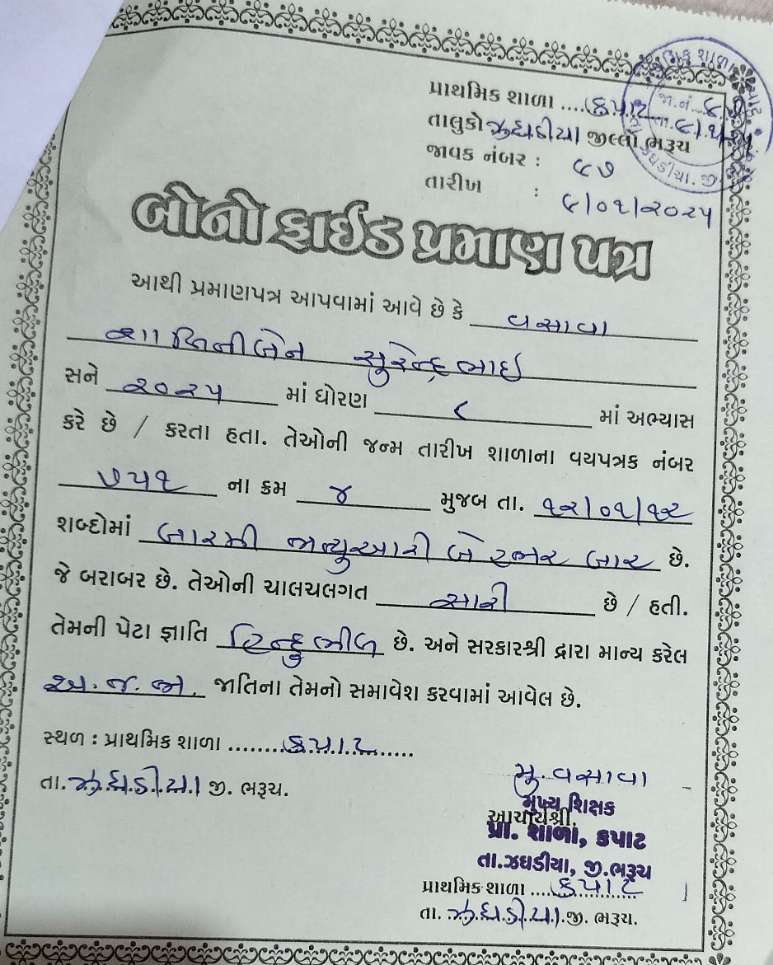 પ્રાથમિક શાળા ....કપાટ
તાલુકો ઝઘડીયા જીલ્લો ભરૂચ
જાવક નંબર : ૯૭
તારીખ : ૯/૦૧/૨૦૨૫
બોનો ફાઈડ પ્રમાણ પત્ર
આથી પ્રમાણપત્ર આપવામાં આવે છે કે વસાવા
સુરેન્દ્રભાઇ
સને ૨૦૨૫ માં ધોરણ ૮ માં અભ્યાસ
કરે છે / કરતા હતા. તેઓની જન્મ તારીખ શાળાના વયપત્રક નંબર
૭૫૧ ના ક્રમ ૪ મુજબ તા. ૧૨/૦૧/૧૨
શબ્દોમાં બારમી જાન્યુઆરી બે હજાર બાર છે.
જે બરાબર છે. તેઓની ચાલચલગત સારી છે / હતી.
તેમની પેટા જ્ઞાતિ હિન્દુ ભીલ છે. અને સરકારશ્રી દ્વારા માન્ય કરેલ
અ.જ.જા. જાતિના તેમનો સમાવેશ કરવામાં આવેલ છે.
સ્થળ : પ્રાથમિક શાળા ........કપાટ......
તા.ઝઘડીયા જી. ભરૂચ.
મુ. વસાવા
મુખ્ય શિક્ષક
આચાર્યશ્રી.
પ્રા. શાળા, કપાટ
તા.ઝઘડીયા, જી.ભરૂચ
પ્રાથમિક શાળા ....કપાટ
તા. ઝઘડીયા.જી. ભરૂચ.